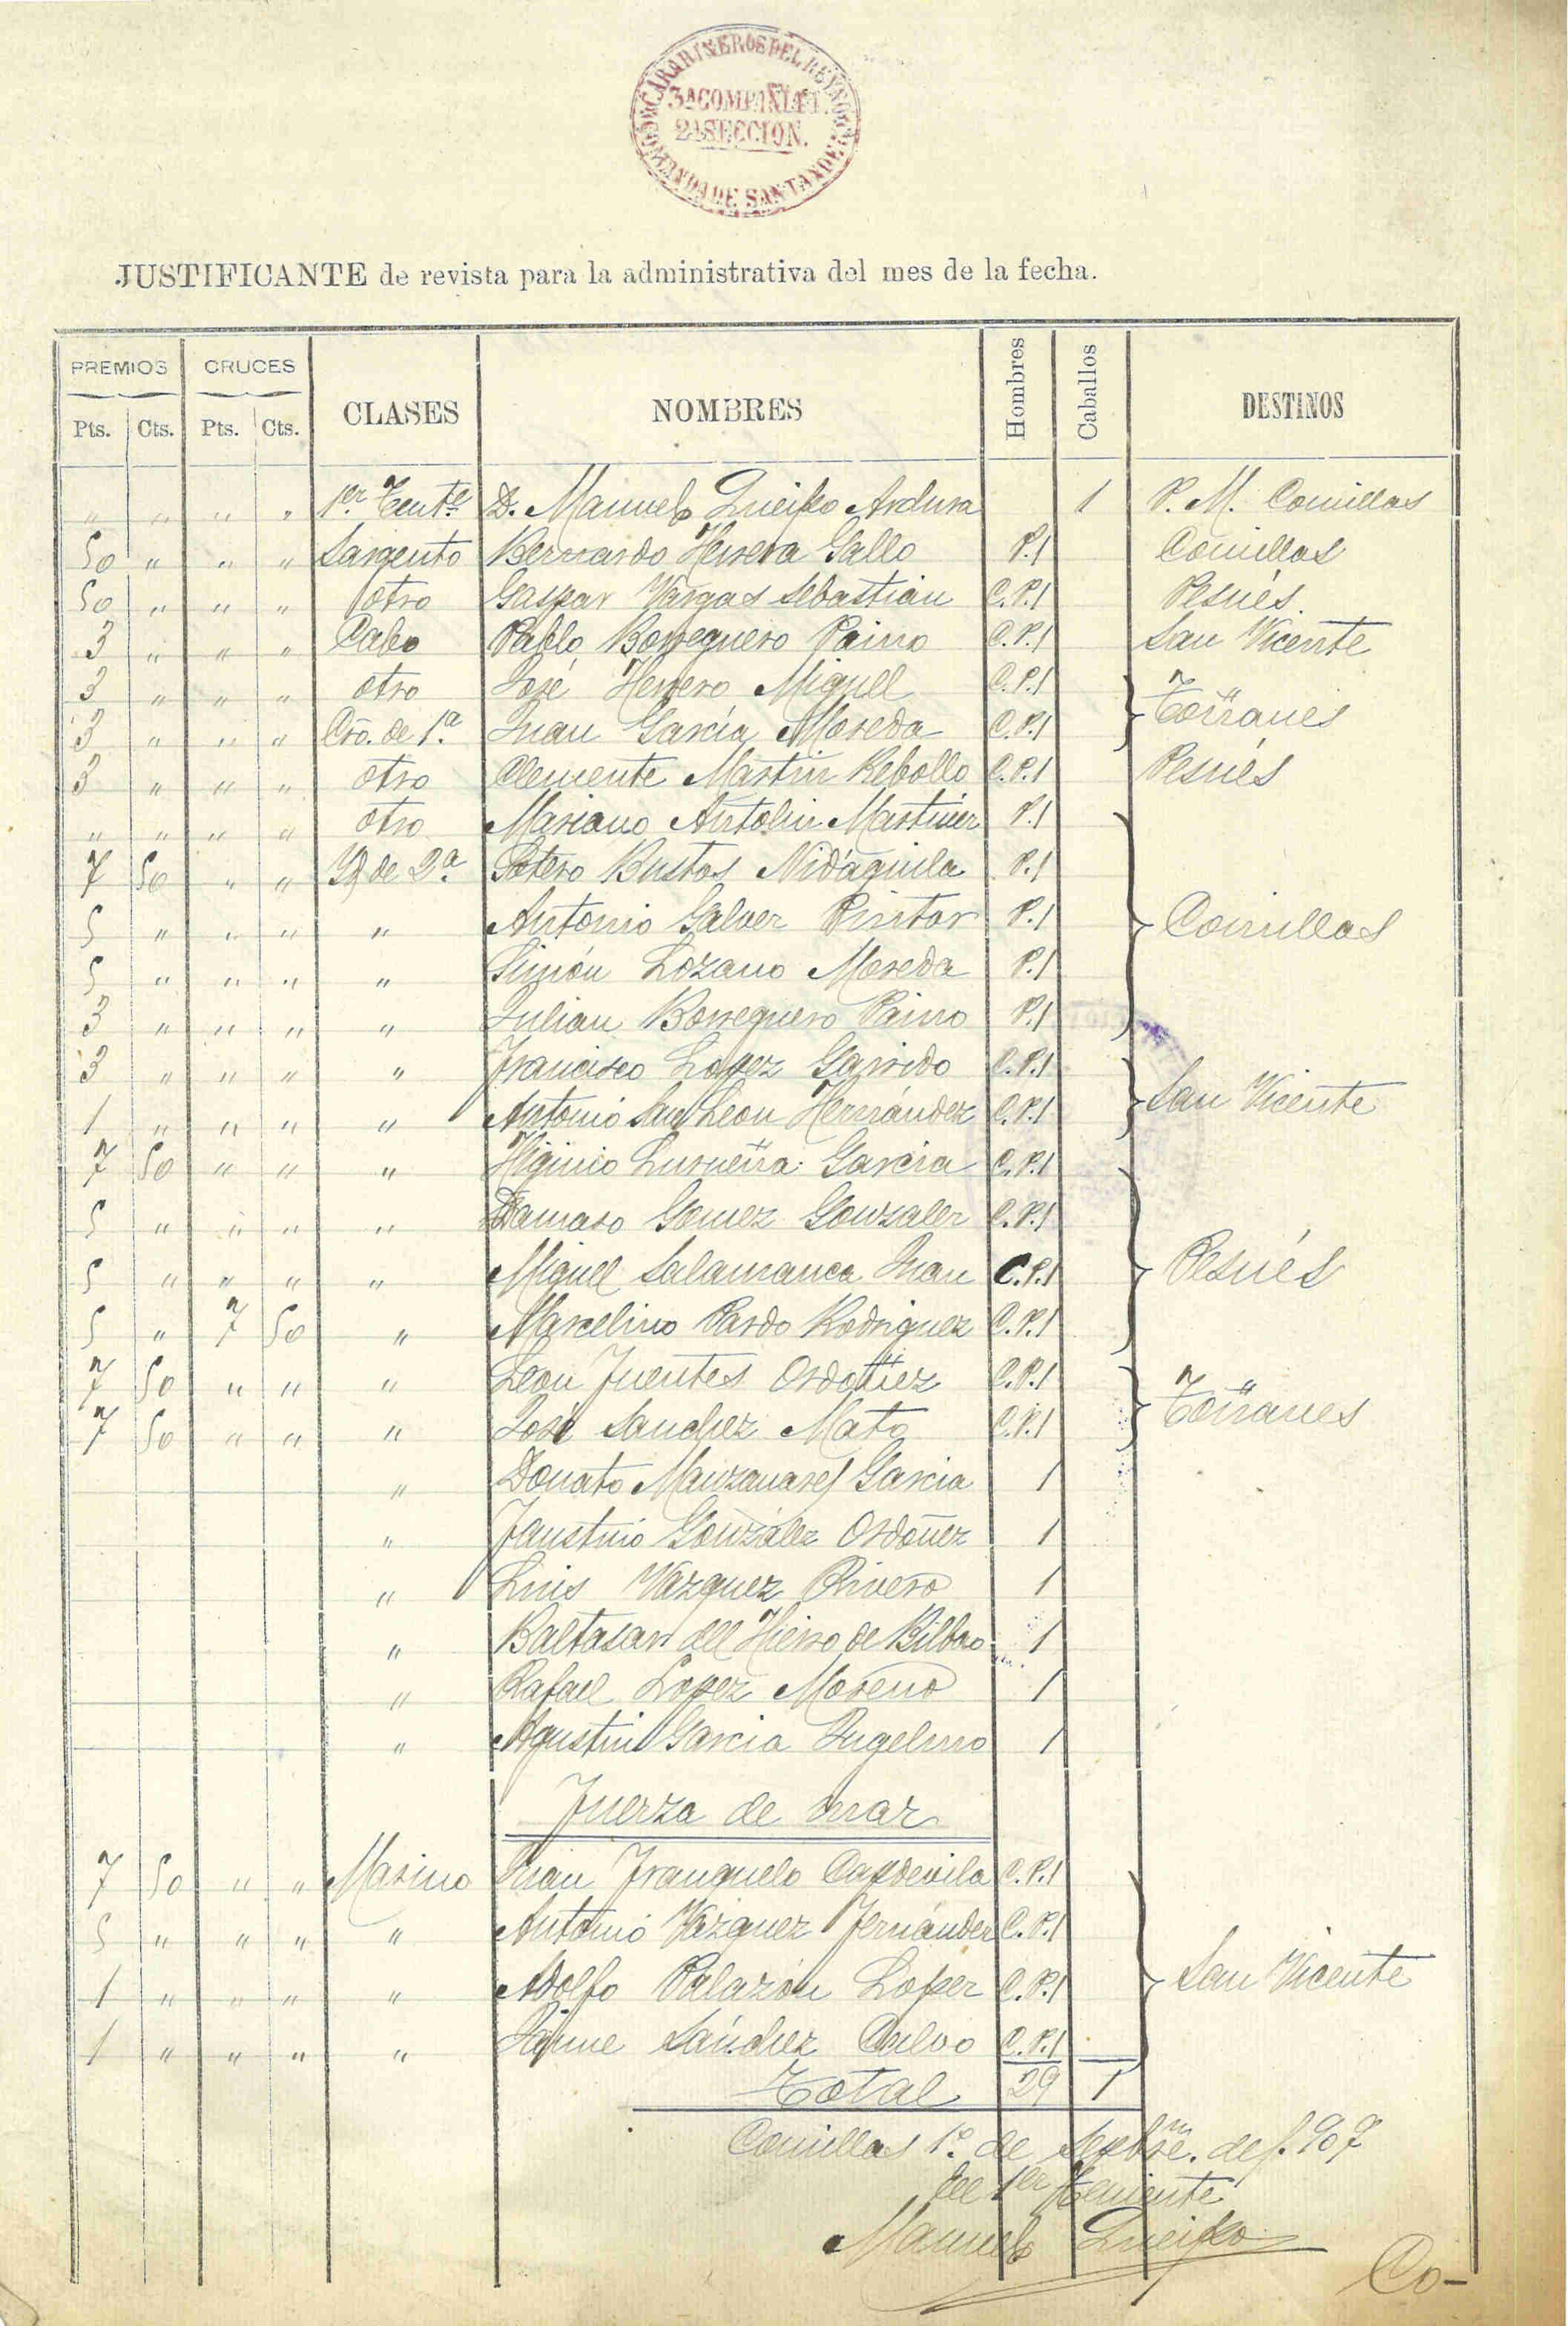 CARABINEROS DEL REYNO
3ª COMPAÑIA
2ª SECCION.
COMANDA DE SANTANDER
JUSTIFICANTE de revista para la administrativa del mes de la fecha.
PREMIOS CRUCES CLASES NOMBRES Hombres Caballos DESTINOS
Pts. Cts. Pts. Cts.
" " " " 1er Tente D. Manuel Queipo Ardura 1 P. M. Comillas
50 " " " Sargento Bernardo Herrera Gallo P.1 Comillas
50 " " " otro Gaspar Vargas Sebastián C.P.1 Pesués.
3 " " " Cabo Pablo Borreguero Paino C.P.1 San Vicente
3 " " " otro José Herrero Miguel C.P.1
3 " " " Cro. de 1ª Juan García Moreda C.P.1 Toñanes
3 " " " otro Clemente Martin Rebollo C.P.1 Pesués
" " " " otro Mariano Antolin Martinez P.1
7 50 " " Id de 2ª Sotero Bustos Nidáguila P.1
5 " " " " Antonio Galvez Pintor P.1 Comillas
5 " " " " Simón Lozano Moreda P.1
3 " " " " Julian Borreguero Paino P.1
3 " " " " Francisco Lopez Garrido C.P.1
1 " " " " Antonio San Leon Hernández C.P.1 San Vicente
7 50 " " " Higinio Lurueña García C.P.1
5 " " " " Damaso Gomez Gonzalez C.P.1
5 " " " " Miguel Salamanca Juan C.P.1 Pesués
5 " 7 50 " Marcelino Pardo Rodriguez C.P.1
7 50 " " " Leon Fuentes Ordoñez C.P.1
7 50 " " " José Sanchez Mato C.P.1 Toñanes
" Donato Manzanares Garcia 1
" Faustino González Ordoñez 1
" Luis Vazquez Rivero 1
" Baltasar del Hierro de Bilbao 1
" Rafael Lopez Moreno 1
" Agustin Garcia Ingelmo 1
Fuerza de mar
7 50 " " Marino Juan Franquelo Capdevila C.P.1
5 " " " " Antonio Vázquez Fernández C.P.1
1 " " " " Adolfo Palazón Lopez C.P.1 San Vicente
1 " " " " Jaime Sánchez Calvo C.P.1
Total 29 1
Comillas 1º. de Septbre. de 1.907
El 1er Teniente
Manuel Queipo
Co-